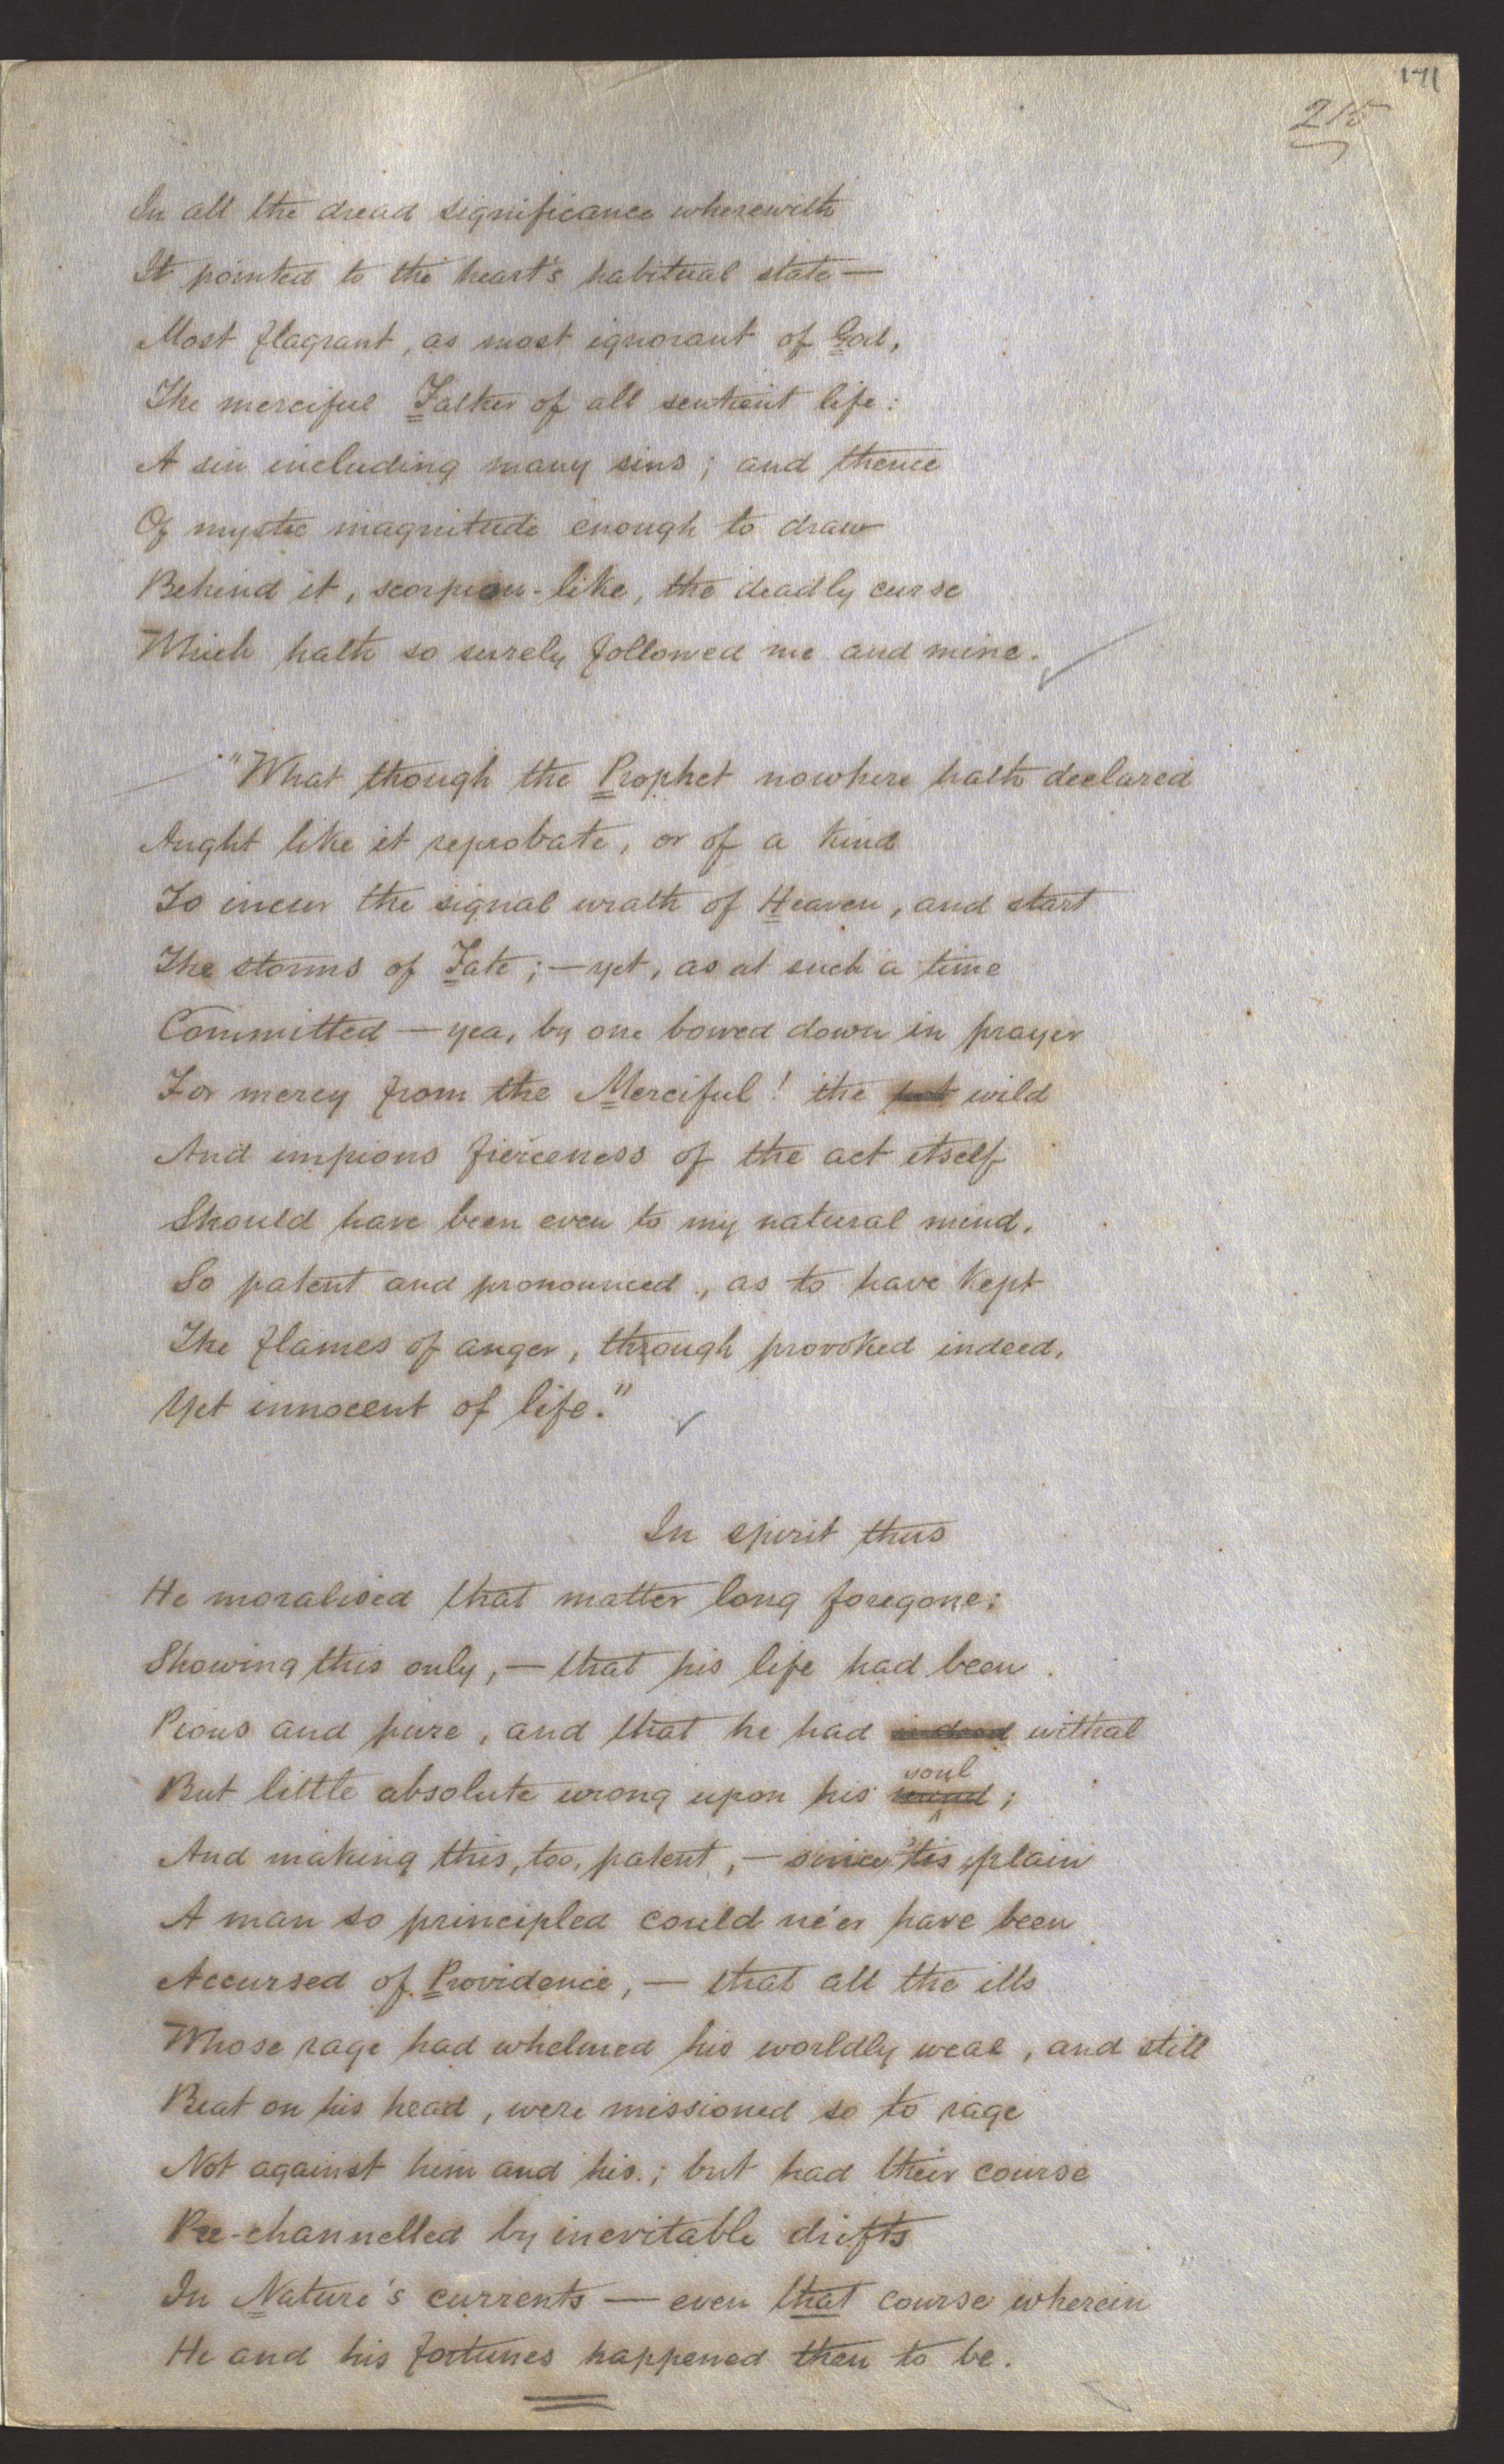 171
215
In all the dread significance wherewith
It pointed to the heart's habitual state —
Most flagrant, as most ignorant of God,
The merciful Father of all sentient life:
A sin including many sins; and thence
Of mystic magnitude enough to draw
Behind it, scorpion-like, the deadly curse
Which hath so surely followed me and mine.
"What though the Prophet nowhere hath declared
Aught like it reprobate, or of a kind
To incur the signal wrath of Heaven, and start
The storms of Fate; — yet, as at such a time
Committed — yea, by one bowed down in prayer
For mercy from the Merciful! the wild
And impious fierceness of the act itself
Should have been even to my natural mind,
So patent and pronounced, as to have kept
The flames of anger, through provoked indeed,
Yet innocent of life."
In spirit thus
He moralised that matter long foregone:
Showing this only, — that his life had been
Pious and pure, and that he had indeed withal
soul
But little absolute wrong upon his mind;
And making this, too, patent, — since 'tis plain
A man so principled could ne'er have been
Accursed of Providence, — that all the ills
Whose rage had whelmed his worldly weal, and still
Beat on his head, were missioned so to rage
Not against him and his; but had their course
Pre-channelled by inevitable drifts
In Nature's currents — even that course wherein
He and his fortunes happened then to be.